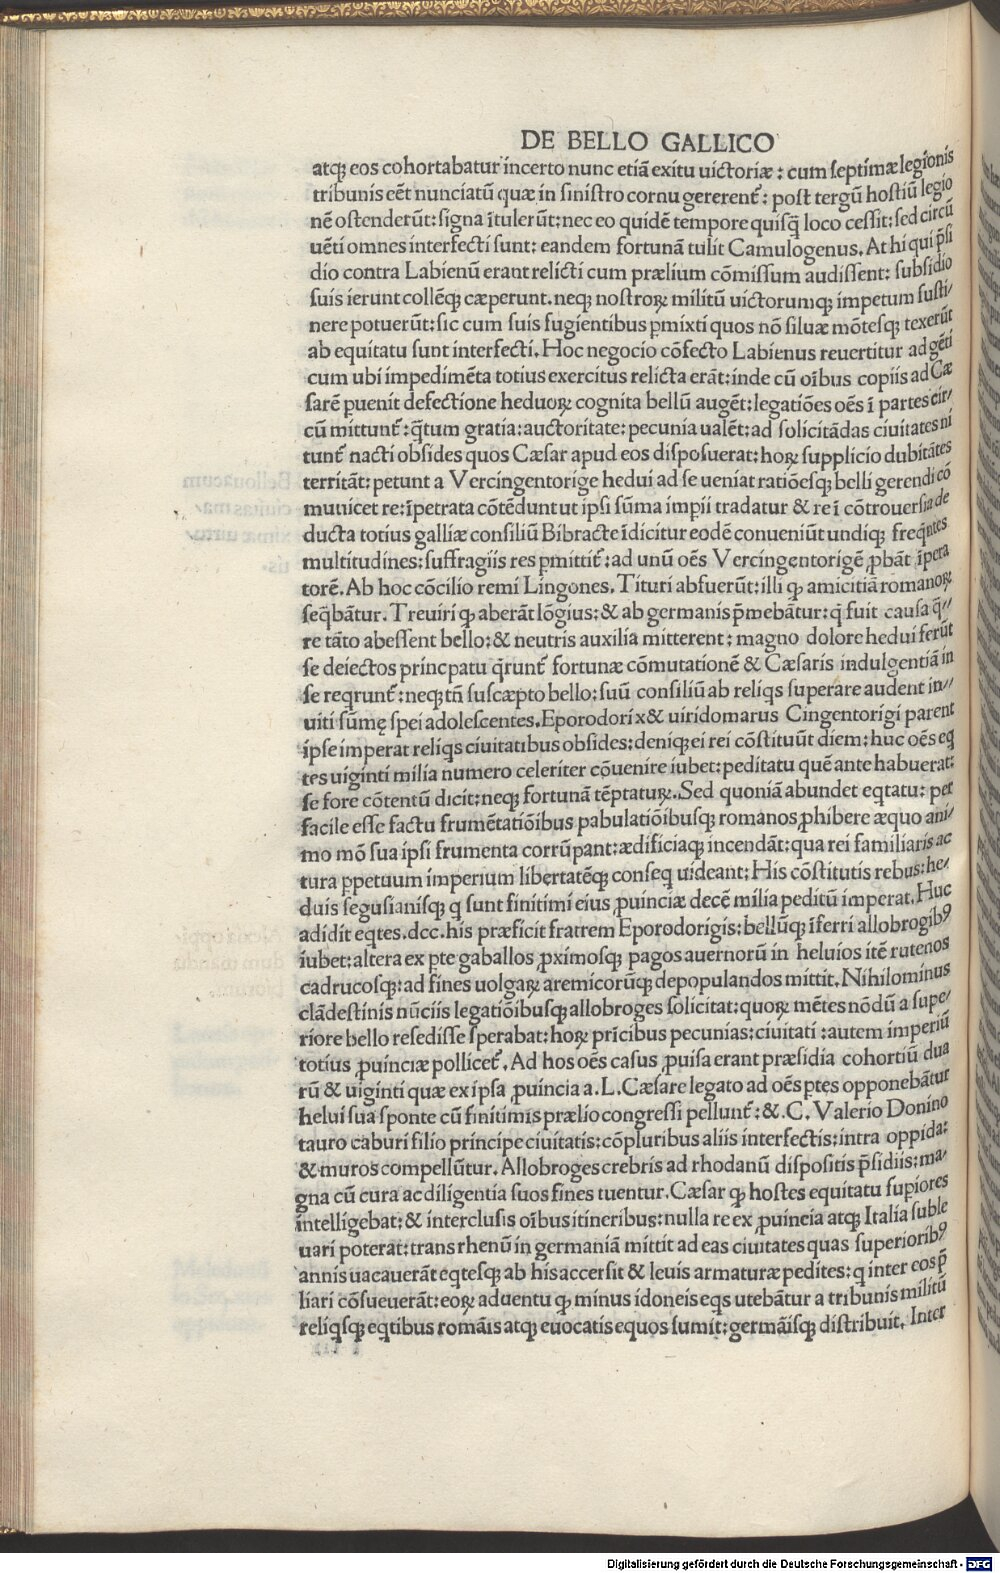 DE BELLO GALLICO
atqꝫ eos cohortabatur incerto nunc etiā exitu uictoriæ : cum septimæ legionis
tribunis eēt nunciatū quæ in sinistro cornu gererent᷑ : post tergū hostiū legio
nē ostenderūt: signa ītulerūt: nec eo quidē tempore quisq̄ loco cessit: sed circū
uēti omnes interfecti sunt: eandem fortunā tulit Camulogenus. At hi qui p̄si
dio contra Labienū erant relicti cum prælium cōmissum audissent: subsidio
suis ierunt collēqꝫ cæperunt. neqꝫ nostroꝝ militū uictorumqꝫ impetum susti/
nere potuerūt: sic cum suis fugientibus ꝑmixti quos nō siluæ mōtesqꝫ texerūt
ab equitatu sunt interfecti. Hoc negocio cōfecto Labienus reuertitur ad gēti
cum ubi impedimēta totius exercitus relicta erāt: inde cū oībus copiis ad Cæ
sarē puenit defectione heduoꝝ cognita bellū augēt: legatiōes oēs ī partes cir/
cū mittunt᷑: q̄tum gratia: auctoritate: pecunia ualēt: ad solicitādas ciuitates ni
tunt᷑ nacti obsides quos Cæsar apud eos disposuerat: hoꝝ supplicio dubitātes
territāt: petunt a Vercingentorige hedui ad se ueniat ratiōesqꝫ belli gerendi cō
municet re: īpetrata cōtēdunt ut ipsi sūma impii tradatur & re ī cōtrouersia de
ducta totius galliæ consiliū Bibracte īdicitur eodē conueniūt undiqꝫ freq̄ntes
multitudines: suffragiis res ꝑmittit᷑: ad unū oēs Vercingentorigē ꝓbāt īpera
torē. Ab hoc cōcilio remi Lingones. Tituri abfuerūt: illi qꝫ amicitiā romanoꝝ
seq̄bātur. Treuiri qꝫ aberāt lōgius: & ab germanis p̄mebātur: q̄ fuit causa q̄//
re tāto abessent bello: & neutris auxilia mitterent: magno dolore hedui ferūt
se deiectos princpatu q̄runt᷑ fortunæ cōmutationē & Cæsaris indulgentiā in
se reqrunt᷑: neqꝫ tn̄ suscæpto bello: suū consiliū ab reliqs superare audent in//
uiti sūmę spei adolescentes. Eporodorix & uiridomarus Cingentorigi parent
ipse imperat reliqs ciuitatibus obsides: deniqꝫ ei rei cōstituūt diem: huc oēs eq
tes uiginti milia numero celeriter cōuenire iubet: peditatu quē ante habuerat:
se fore cōtentū dicit: neqꝫ fortunā tēptatuꝝ. Sed quoniā abundet eqtatu: per
facile esse factu frumētatiōibus pabulatiōibusqꝫ romanos ꝓhibere æquo ani/
mo mō sua ipsi frumenta corrūpant: ædificiaqꝫ incendāt: qua rei familiaris ac
tura ꝑpetuum imperium libertatēqꝫ conseq uideant; His cōstitutis rebus: he/
duis segusianisqꝫ q sunt finitimi eius ꝓuinciæ decē milia peditū imperat. Huc
adidit eqtes. dcc. his præficit fratrem Eporodorigis: bellūqꝫ īferri allobrogibꝰ
iubet: altera ex pte gaballos ꝓximosqꝫ pagos auernorū in heluios itē rutenos
cadrucosqꝫ: ad fines uolgaꝝ aremicorūqꝫ depopulandos mittit. Nihilominus
clādestinis nūciis legatiōibusqꝫ allobroges solicitat: quoꝝ mētes nōdū a supe/
riore bello resedisse sperabat: hoꝝ prīcibus pecunias: ciuitati : autem imperiū
totius ꝓuinciæ pollicet᷑. Ad hos oēs casus ꝓuisa erant præsidia cohortiū dua
rū & uiginti quæ ex ipsa ꝓuincia a. L. Cæsare legato ad oēs ptes opponebātur
helui sua sponte cū finitimis prælio congressi pellunt᷑: &. C. Valerio Donino
tauro caburi filio principe ciuitatis: cōpluribus aliis interfectis: intra oppida:
& muros compellūtur. Allobroges crebris ad rhodanū dispositis p̄sidiis: ma/
gna cū cura ac diligentia suos fines tuentur. Cæsar qꝫ hostes equitatu supiores
intelligebat: & interclusis oībus itineribus: nulla re ex ꝓuincia atqꝫ Italia suble
uari poterat: trans rhenū in germaniā mittit ad eas ciuitates quas superioribꝰ
annis uacauerāt eqtesqꝫ ab his accersit & leuis armaturæ pedites: q inter eos p̄
liari cōsueuerāt: eoꝝ aduentu qꝫ minus idoneis eqs utebātur a tribunis militū
reliqsqꝫ eqtibus romāis atqꝫ euocatis equos sumit: germāisqꝫ distribuit. Inter
Digitalisierung gefördert durch die Deutsche Forschungsgemeinschaft - DFG